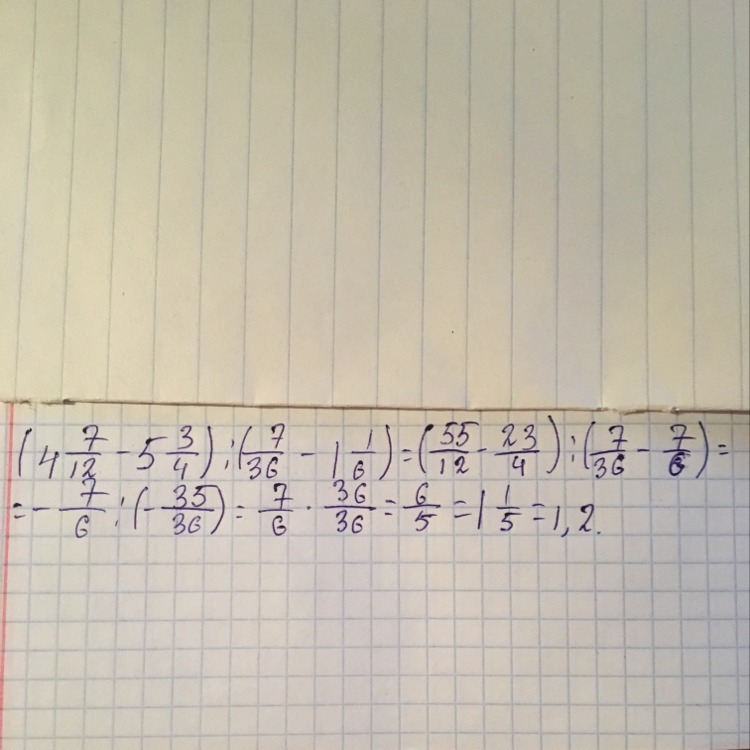 (4 7/12 - 5 3/4) : (7/36 - 1 1/6) = (55/12 - 23/4) : (7/36 - 7/6) =
= - 7/6 : (- 35/36) = 7/6 · 36/36 = 6/5 = 1 1/5 = 1,2.